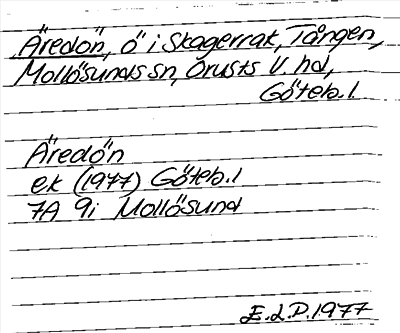 Äredön, ö i Skagerrak, Tången,
Mollösunds sn, Orusts V. hd,
Göteb. l.
Äredön
ek (1977) Göteb. l
7A 9i Mollösund
E.L.P. 1977